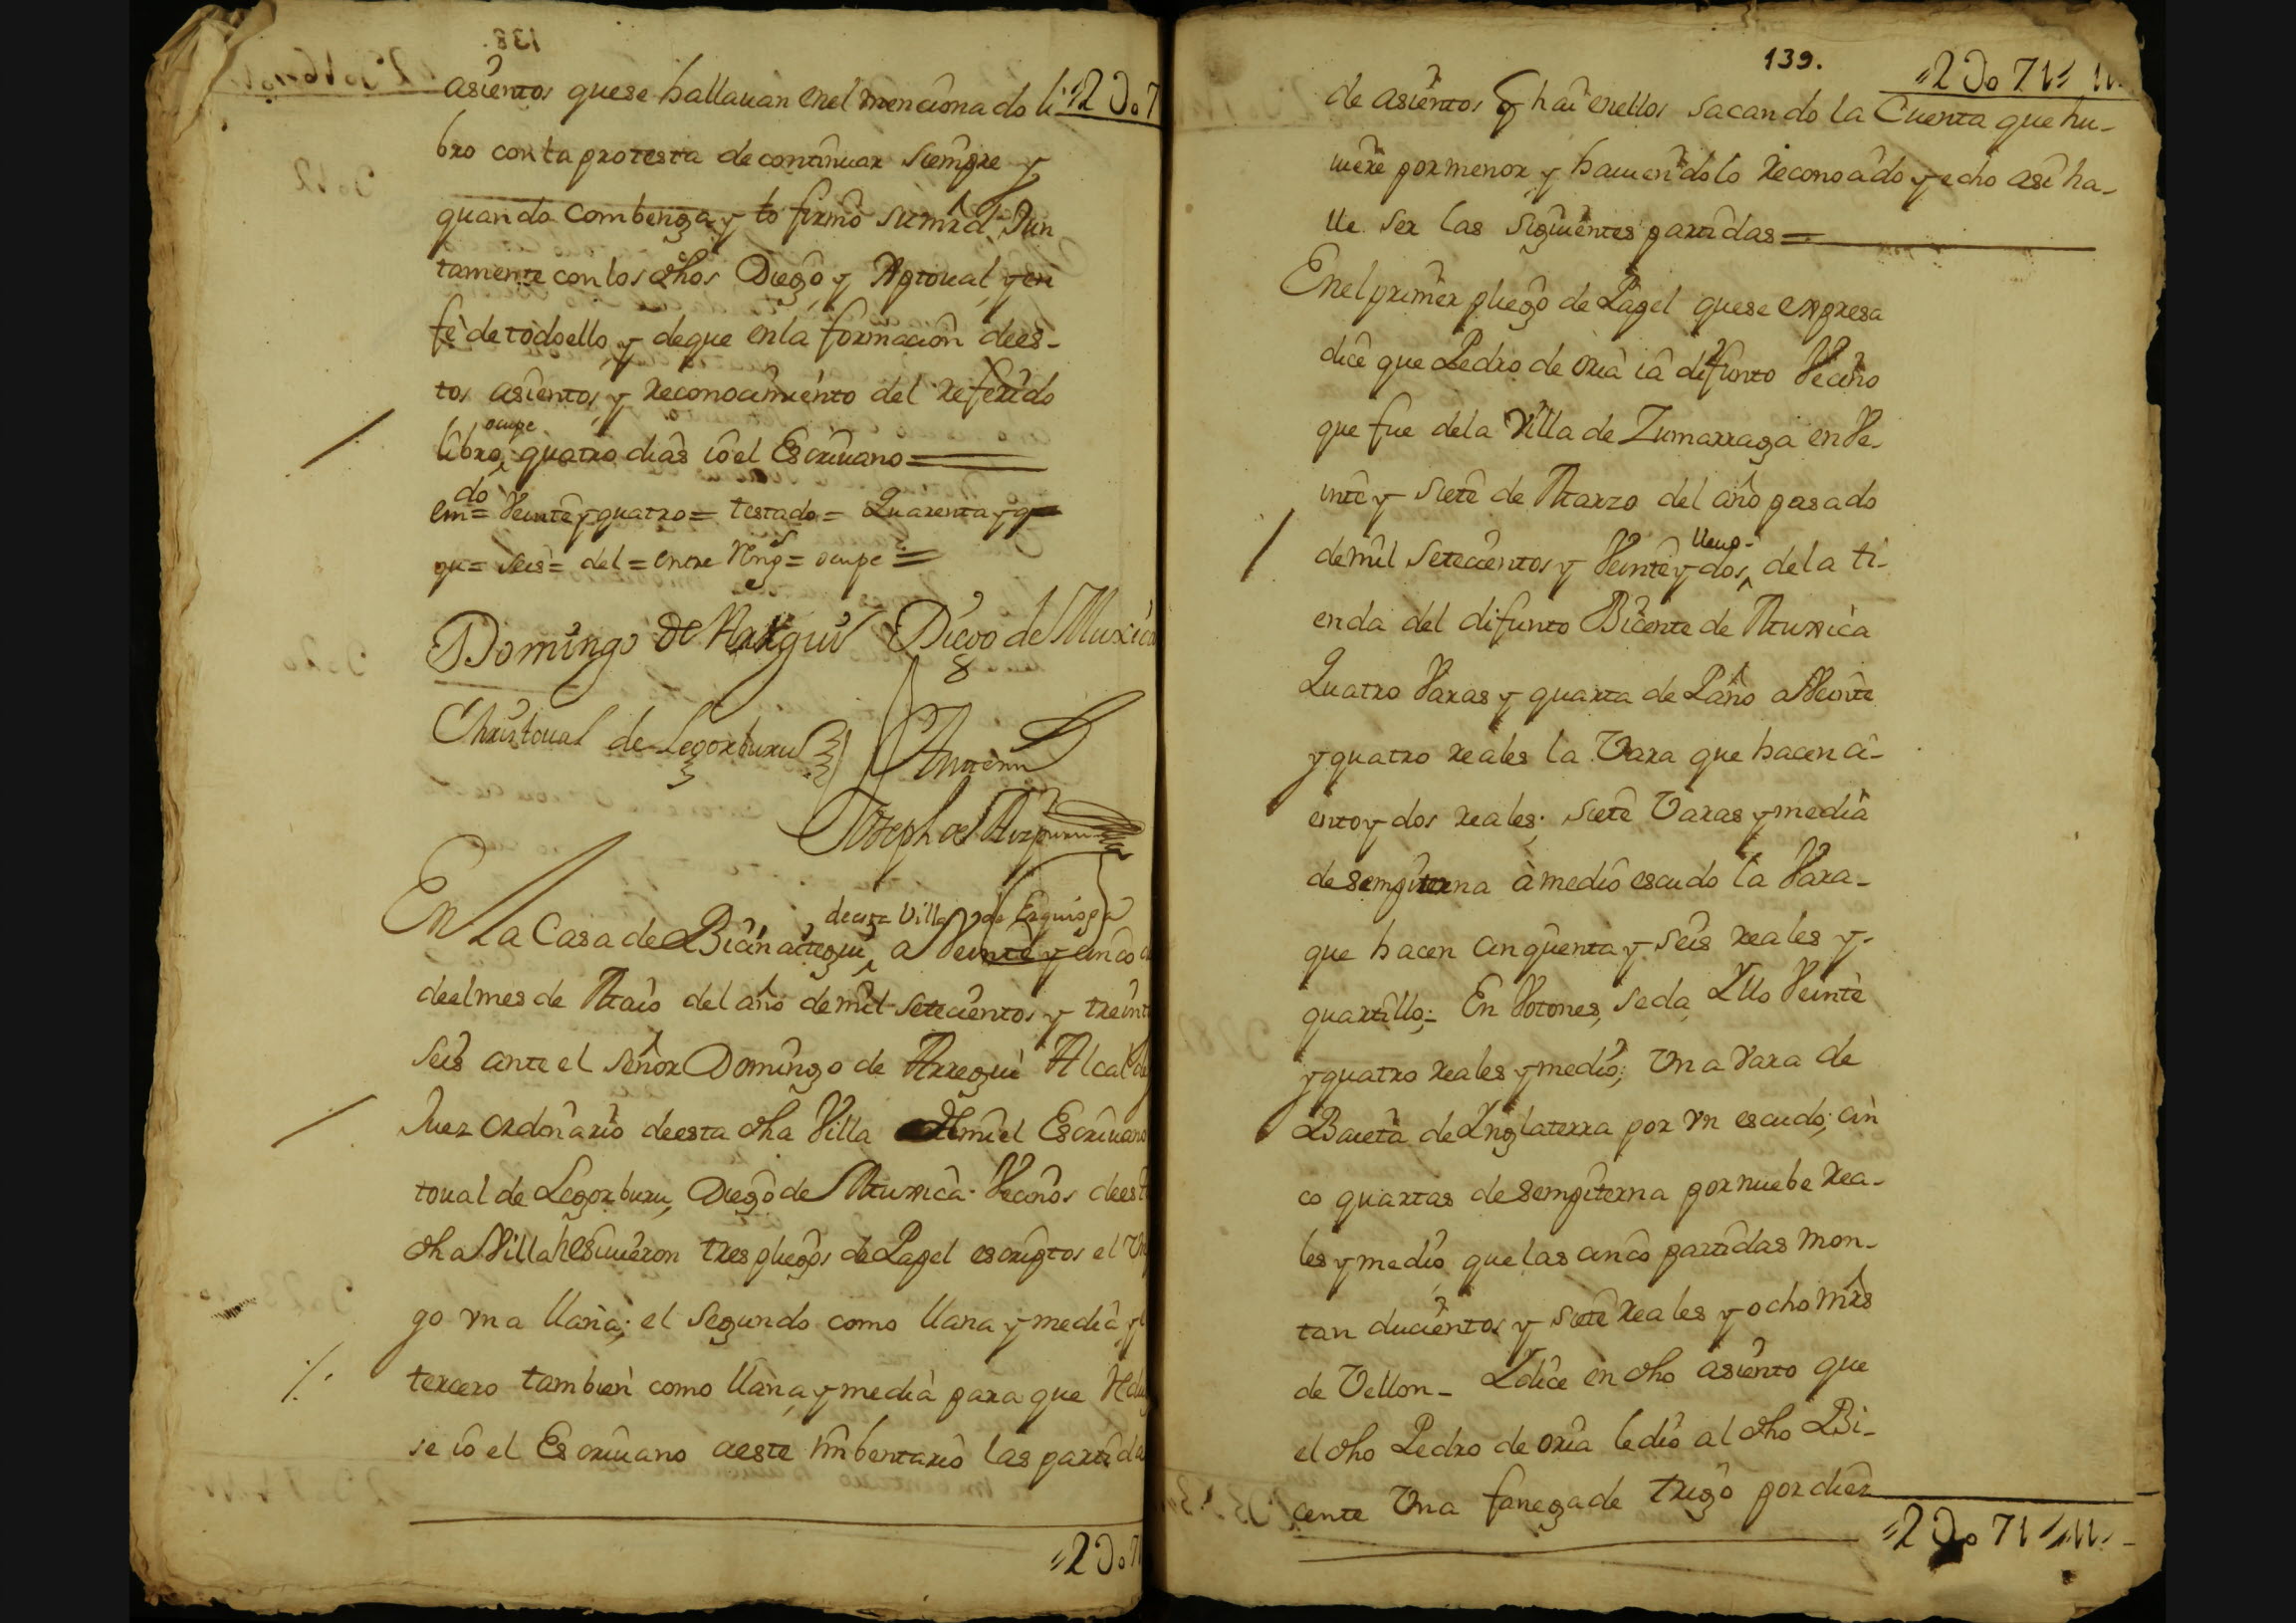 asientos que se hallauan en el menciona do li- 2 Do 7
bro con la protesta de continuar siempre y
quando combenga y lo firmo sumrd Jun
tamente con los dhos Diego y Xptoual, y en
fè de todo ello y de que en la formacion de es-
tos asientos, y reconocimiento del referido
ocupe
libro, quatro dias io el Escriuano =
do
em = Veinte y quatro = testado = Quarenta y q
qu = seis = del = entre Rengs = ocupe =
Domingo de Diego de Muxica
Christoual de Legorburu
Antemi
Joseph de
de esta Villa de Ezquioga
En La Casa de a Veinte y cinco d
de el mes de Maio del año de mil setecientos y treint
seis ante el señor Domingo de Arregui Alcalde
Juez ordinario de esta dha Villa mi el Escriuano
toual de Legorburu, Diego de Muxica Vecinos de est
dha Villa escriuieron tres pliegos de Papel escriptos el
go vna llana; el segundo como llana y media, y
tercero tambien como llana, y media para que
se io el Escriuano a este Imbentario las partida
2 Do 7
139.
2 Do 71 11
de asientos y hai en ellos sacando la Cuenta que hu-
uiere por menor y hauiendolo reconocido y echo asi ha-
lle ser las siguientes partidas =
En el primer pliego de Papel que se expresa
dice que Pedro de oria ia difunto Vecino
que fue de la Villa de Zumarraga en Ve-
inte y siete de Marzo del año pasado
lleuo-
de mil setecientos y Veinte y dos, de la ti-
enda del difunto Bicente de Muxica
Quatro Varas y quarta de Paño a Veinte
y quatro reales la Vara que hacen ci-
ento y dos reales; siete Varas y media
de sempiterna à medio escudo la Vara-
que hacen cinquenta y seis reales y
quartillo; En Votones, seda Ylo Veinte
y quatro reales y medio; Vna Vara de
Baieta de Ynglaterra por vn escudo; cin
co quartas de sempiterna por nuebe rea-
les y medio que las cinco partidas mon-
tan ducientos y siete reales y ocho mrs
de Vellon - Y dice en dho asiento que
el dho Pedro de oria le dio al dho Bi-
cente Vna fanega de trigo por diez
2 Do 71 11